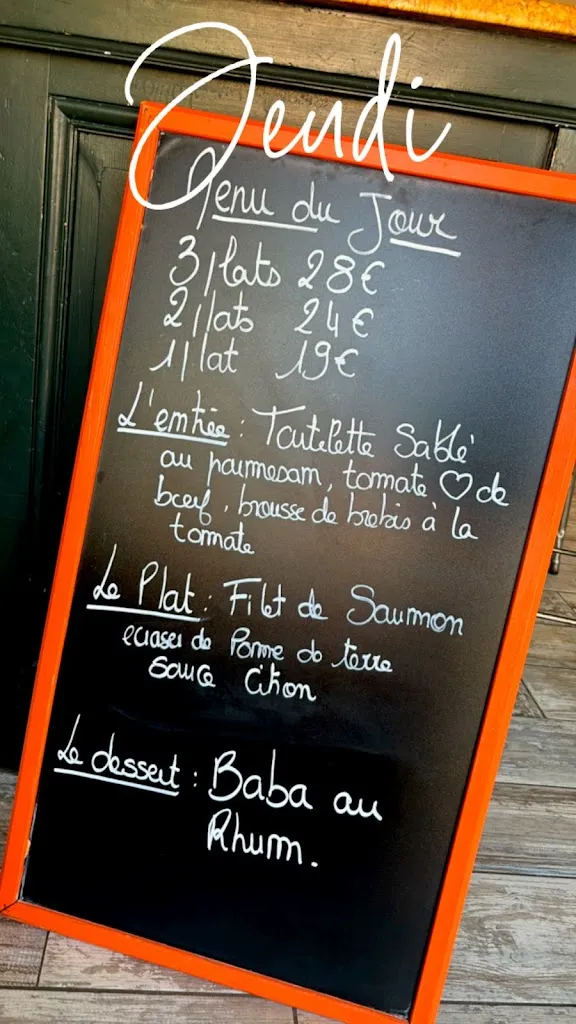 Jeudi
Menu du Jour
3 plats 28€
2 plats 24€
1 plat 19€
L'entrée : Tartelette Sablé
au parmesan, tomate ♡ de
bœuf, brousse de brebis à la
tomate
Le Plat : Filet de Saumon
ecraser de Pomme de terre
sauce Citron
Le dessert : Baba au
Rhum.